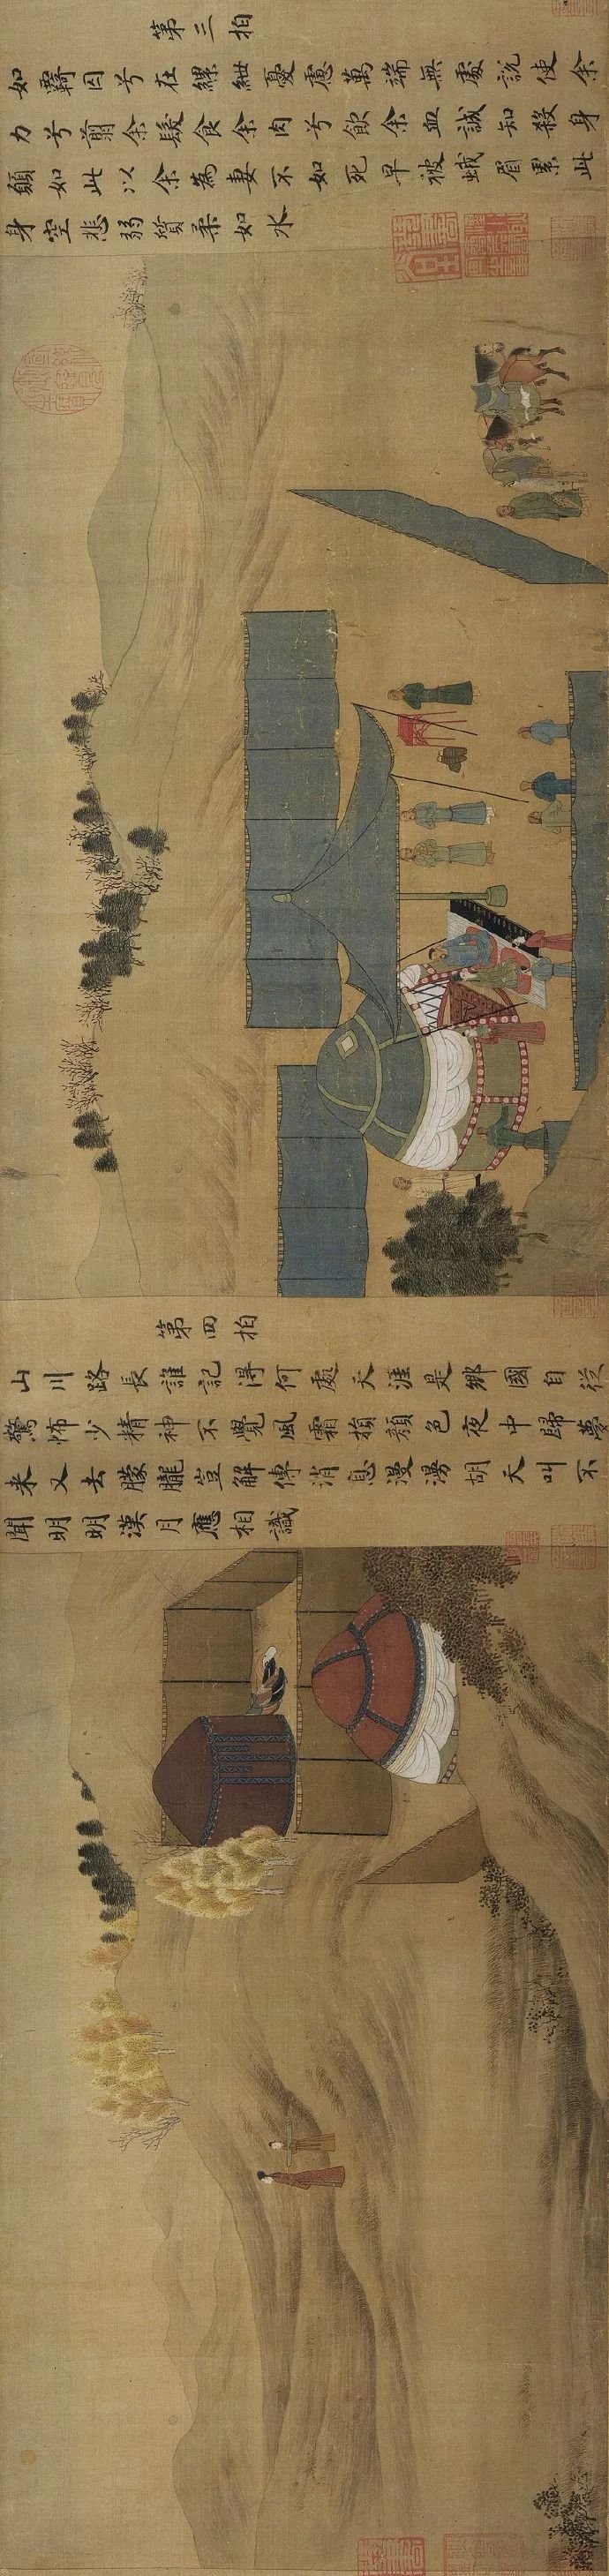 第三拍
如羈囚兮在縲紲憂慮萬端無處説使余
力兮翦余髮食余肉兮飲余血誠知殺身
願如此以余為妻不如死早被蛾眉累此
身空悲弱質柔如水
第四拍
山川路長誰記得何處天涯是鄉國自從
驚怖少精神不覺風霜損顏色夜中歸夢
来又去朦朧豈解傳消息漫漫胡天叫不
聞明明漢月應相識